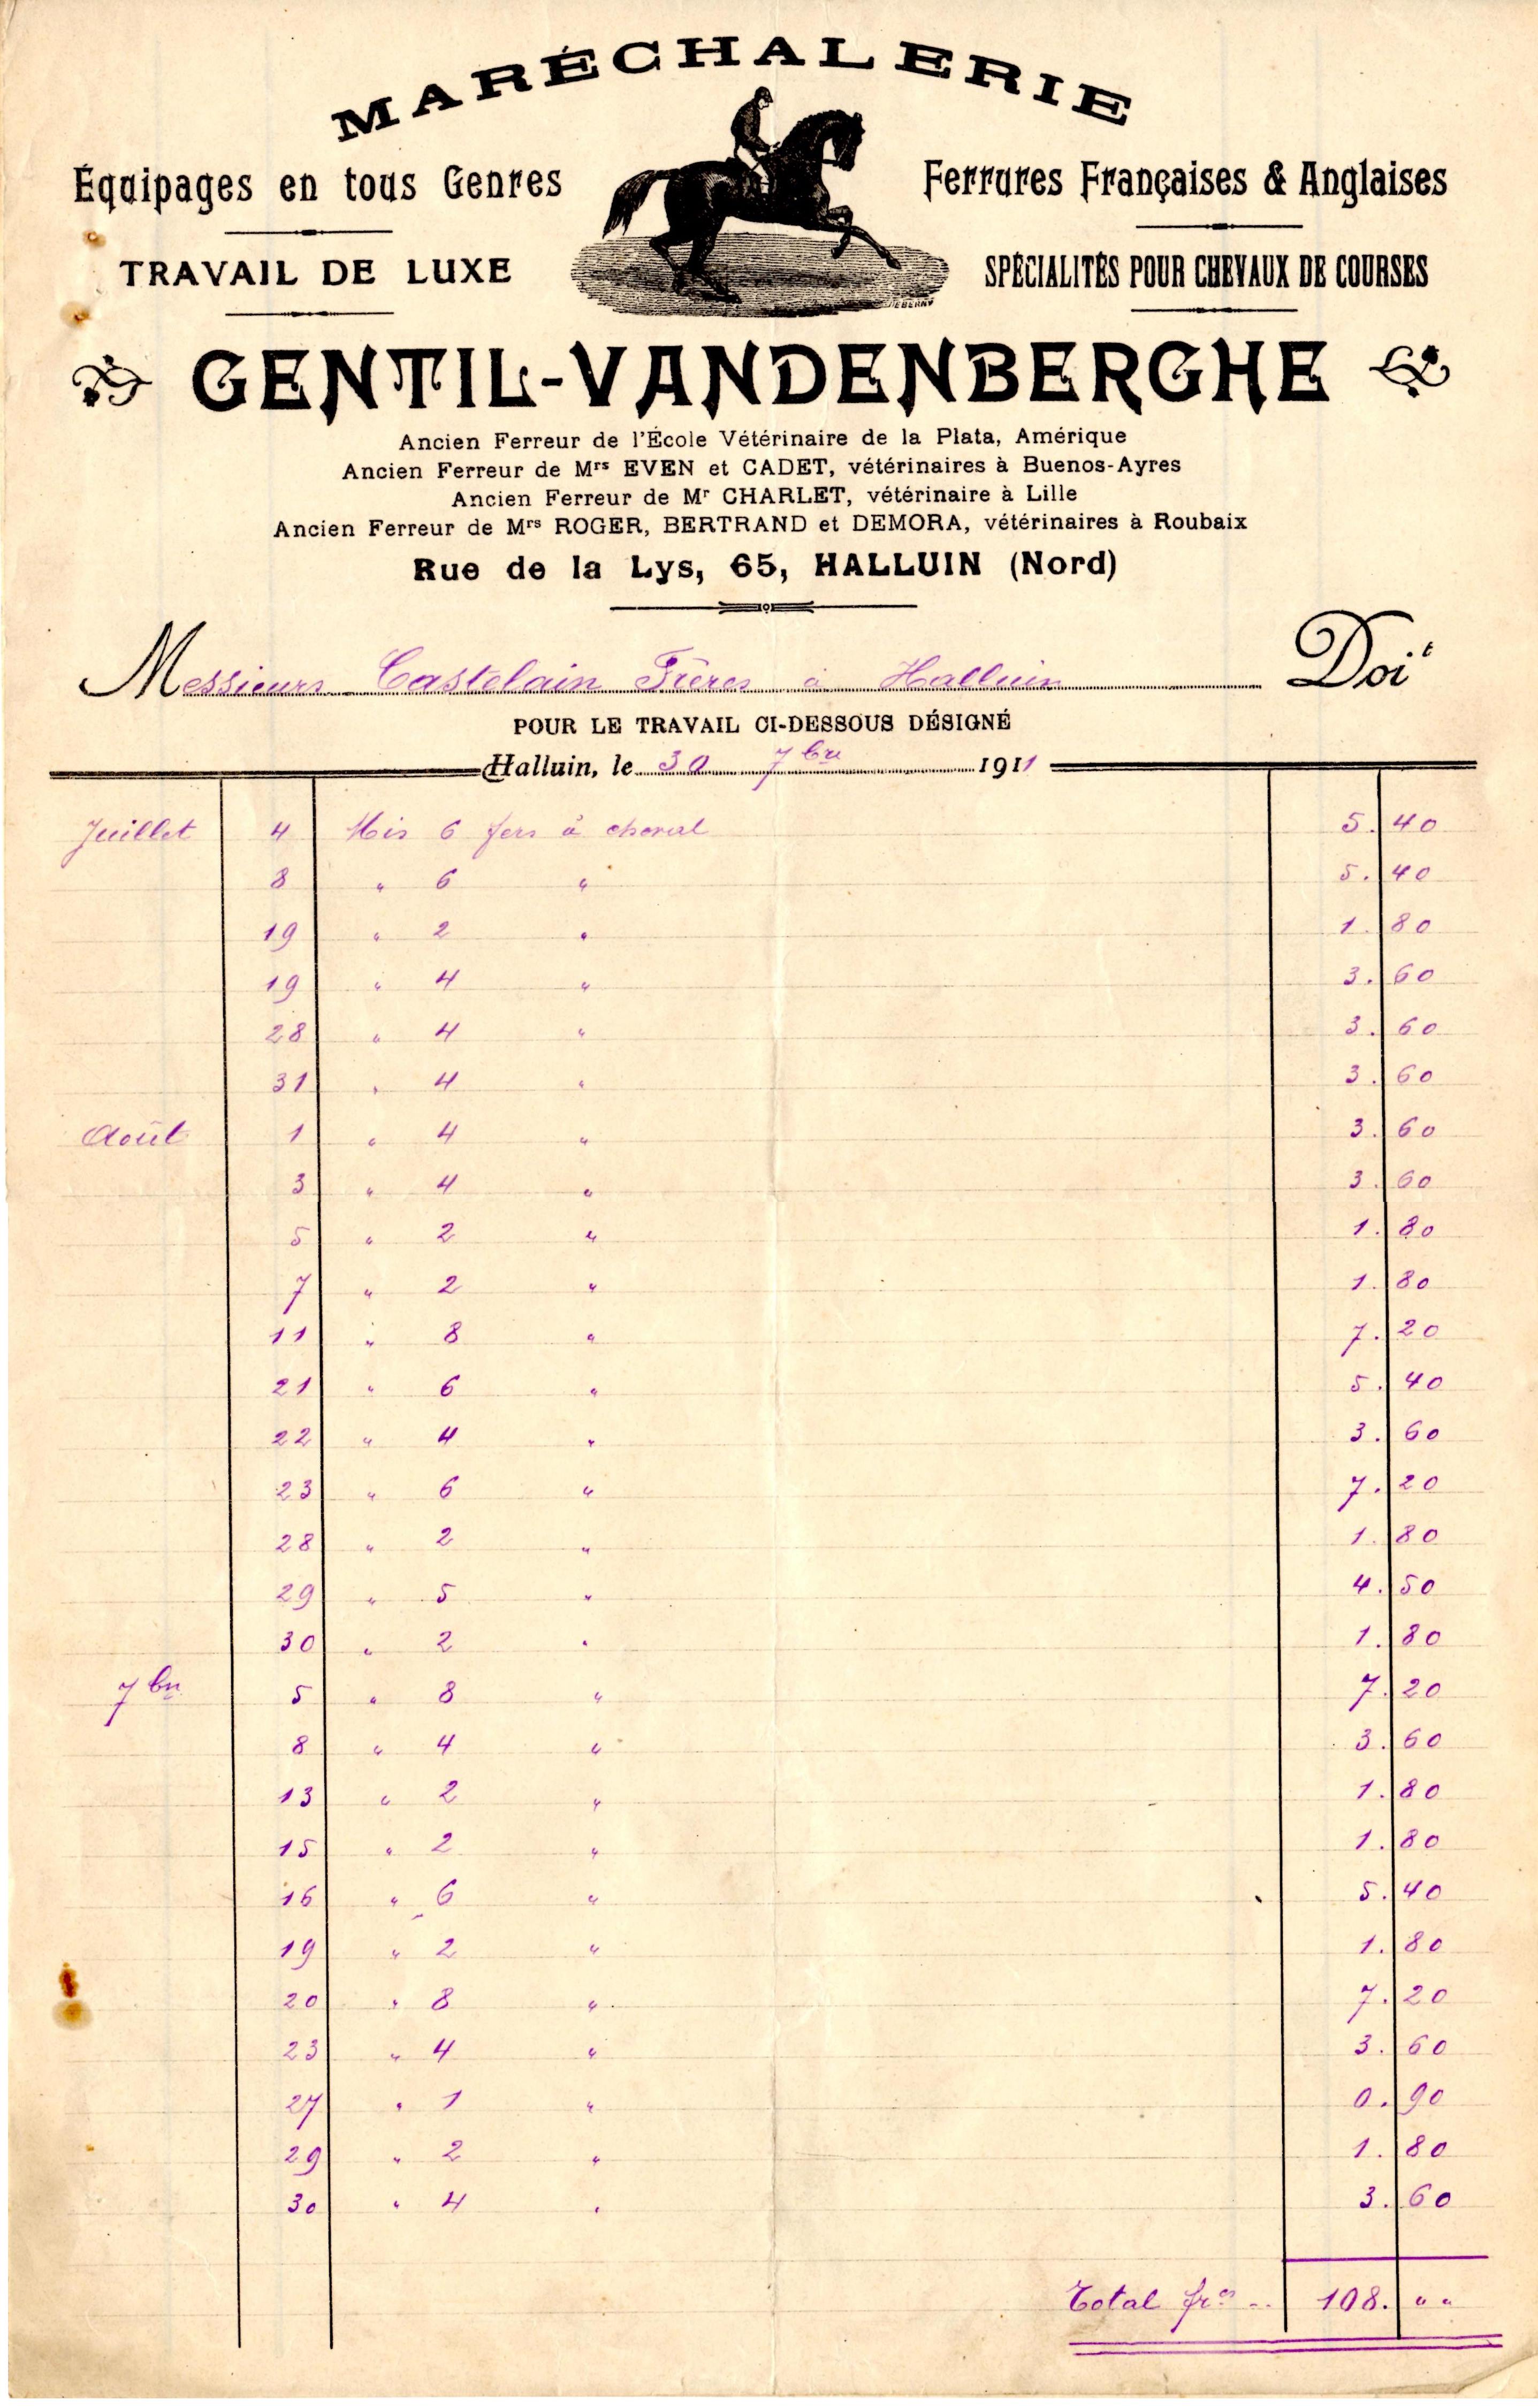 MARÉCHALERIE
Équipages en tous Genres
Ferrures Françaises & Anglaises
TRAVAIL DE LUXE
SPÉCIALITÉS POUR CHEVAUX DE COURSES
GENTIL-VANDENBERGHE
Ancien Ferreur de l'École Vétérinaire de la Plata, Amérique
Ancien Ferreur de Mrs EVEN et CADET, vétérinaires à Buenos-Ayres
Ancien Ferreur de Mr CHARLET, vétérinaire à Lille
Ancien Ferreur de Mrs ROGER, BERTRAND et DEMORA, vétérinaires à Roubaix
Rue de la Lys, 65, HALLUIN (Nord)
Messieurs Castelain Frères à Halluin Doit
POUR LE TRAVAIL CI-DESSOUS DÉSIGNÉ
Halluin, le 30 7bre 1911
Juillet 4 Mis 6 fers à cheval 5.40
8 " 6 " 5.40
19 " 2 " 1.80
19 " 4 " 3.60
28 " 4 " 3.60
31 " 4 " 3.60
Août 1 " 4 " 3.60
3 " 4 " 3.60
5 " 2 " 1.80
7 " 2 " 1.80
11 " 8 " 7.20
21 " 6 " 5.40
22 " 4 " 3.60
23 " 6 " 7.20
28 " 2 " 1.80
29 " 5 " 4.50
30 " 2 " 1.80
7bre 5 " 8 " 7.20
8 " 4 " 3.60
13 " 2 " 1.80
15 " 2 " 1.80
16 " 6 " 5.40
19 " 2 " 1.80
20 " 8 " 7.20
23 " 4 " 3.60
27 " 1 " 0.90
29 " 2 " 1.80
30 " 4 " 3.60
Total frcs .. 108. " "